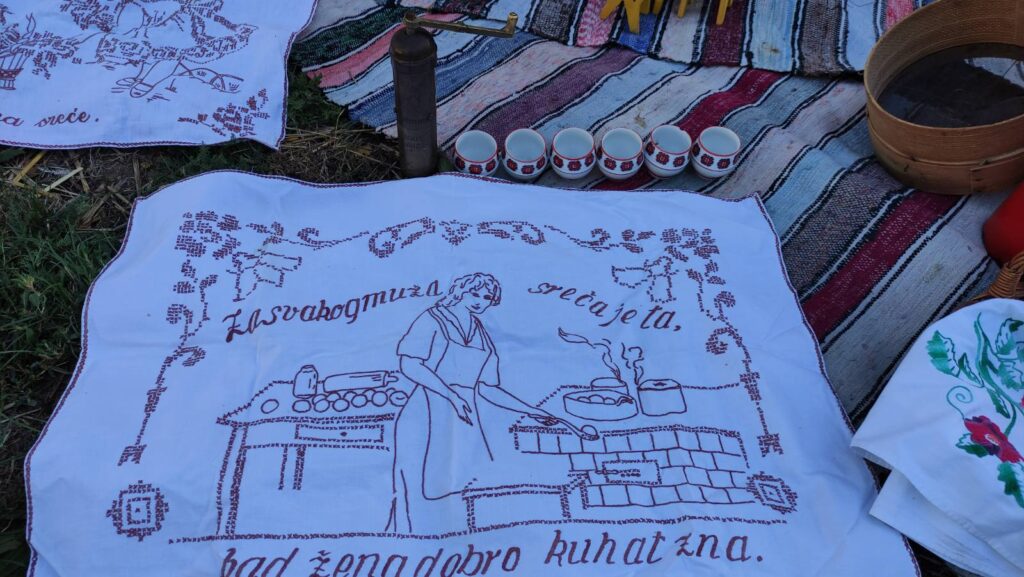 sreće.
Za svakog muža sreća je ta,
kad žena dobro kuhat zna.